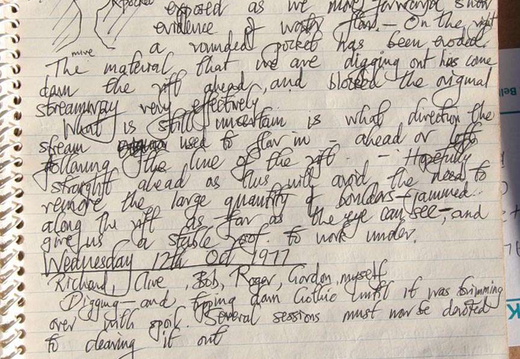 pocket exposed as we move forward show
evidence of water flow. - On the right
a rounded pocket has been eroded.
The material that we are digging out has come
down the rift ahead, and blocked the original
streamway very effectively
What is still uncertain is what direction the
stream used to flow in - ahead or left
following the line of the rift. - Hopefully
straight ahead as this will avoid the need to
remove the large quantity of boulders jammed
along the rift as far as the eye can see -, and
give us a stable roof to work under.
Wednesday 12th Oct 1977
Richard, Clive, Bob, Roger, Gordon, myself
Digging - and tipping down Gothic until it was brimming
over with spoil. Several sessions must now be devoted
to clearing it out